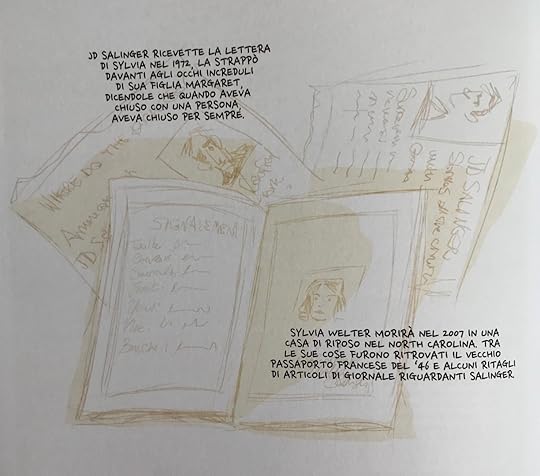 JD SALINGER RICEVETTE LA LETTERA
DI SYLVIA NEL 1972, LA STRAPPÒ
DAVANTI AGLI OCCHI INCREDULI
DI SUA FIGLIA MARGARET,
DICENDOLE CHE QUANDO AVEVA
CHIUSO CON UNA PERSONA,
AVEVA CHIUSO PER SEMPRE.
JD SALINGER
SYLVIA WELTER MORIRÀ NEL 2007 IN UNA
CASA DI RIPOSO NEL NORTH CAROLINA. TRA
LE SUE COSE FURONO RITROVATI IL VECCHIO
PASSAPORTO FRANCESE DEL '46 E ALCUNI RITAGLI
DI ARTICOLI DI GIORNALE RIGUARDANTI SALINGER